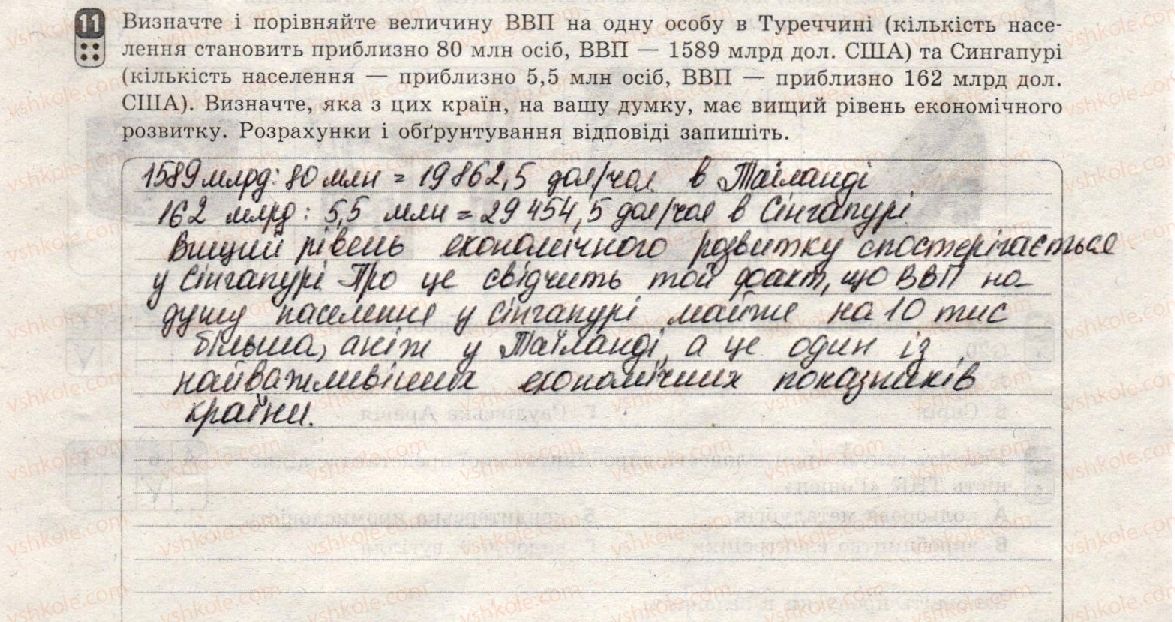 11
Визначте і порівняйте величину ВВП на одну особу в Туреччині (кількість насе-
лення становить приблизно 80 млн осіб, ВВП — 1589 млрд дол. США) та Сингапурі
(кількість населення — приблизно 5,5 млн осіб, ВВП — приблизно 162 млрд дол.
США). Визначте, яка з цих країн, на вашу думку, має вищий рівень економічного
розвитку. Розрахунки і обґрунтування відповіді запишіть.
1589 млрд : 80 млн = 19862,5 дол/чол в Таїланді
162 млрд : 5,5 млн = 29 454,5 дол/чол в Сінгапурі
Вищий рівень економічного розвитку спостерігається
у Сінгапурі Про це свідчить той факт, що ВВП на
душу населення у Сінгапурі майже на 10 тис
більша, аніж у Таїланді, а це один із
найважливіших економічних показників
країни.